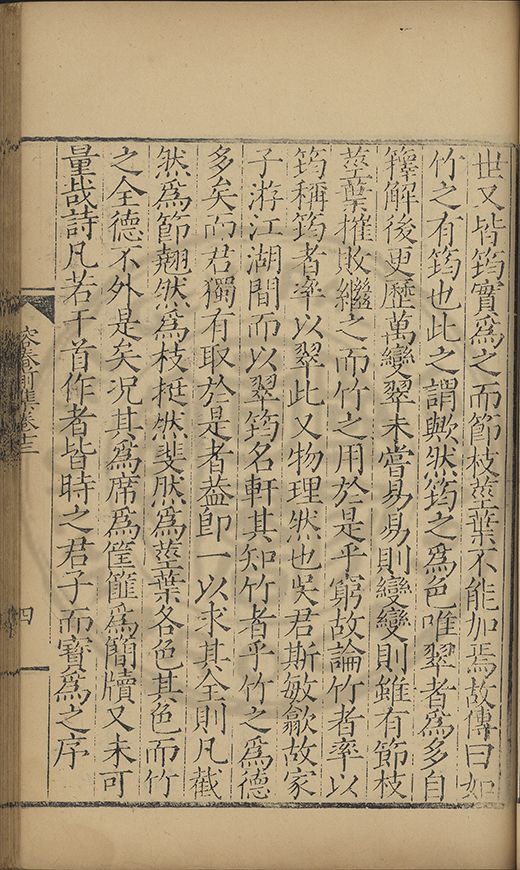 世又皆筠實爲之而節枝莖葉不能加焉故傳曰如
竹之有筠也此之謂歟然筠之爲色唯翠者爲多自
籜解後更歷萬變翠未嘗易易則變變則雖有節枝
莖葉摧敗繼之而竹之用於是乎窮故論竹者率以
筠稱筠者率以翠此又物理然也吳君斯敏歙故家
子游江湖間而以翠筠名軒其知竹者乎竹之爲德
多矣而君獨有取於是者葢即一以求其全則凡截
然爲節翹然爲枝挺然斐然爲莖葉各色其色而竹
之全德不外是矣况其爲席爲筐篚爲簡牘又未可
量哉詩凡若干首作者皆時之君子而寳爲之序
容春前集卷十三
四